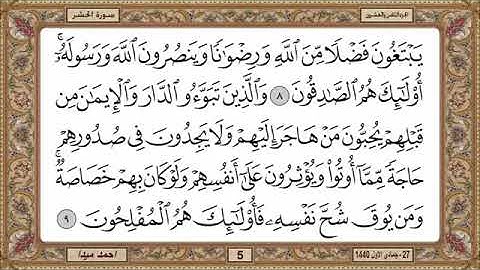 سورة الحشر
الجزء الثامن والعشرين
يَبْتَغُونَ فَضْلًا مِّنَ اللَّهِ وَرِضْوَانًا وَيَنصُرُونَ اللَّهَ وَرَسُولَهُ ۚ
أُولَٰئِكَ هُمُ الصَّادِقُونَ ٨ وَالَّذِينَ تَبَوَّءُو الدَّارَ وَالْإِيمَٰنَ مِن
قَبْلِهِمْ يُحِبُّونَ مَنْ هَاجَرَ إِلَيْهِمْ وَلَا يَجِدُونَ فِي صُدُورِهِمْ
حَاجَةً مِّمَّا أُوتُوا وَيُؤْثِرُونَ عَلَىٰ أَنفُسِهِمْ وَلَوْ كَانَ بِهِمْ خَصَاصَةٌ ۚ
وَمَن يُوقَ شُحَّ نَفْسِهِ فَأُولَٰئِكَ هُمُ الْمُفْلِحُونَ ٩
27 - جمادى الأول 1440
5